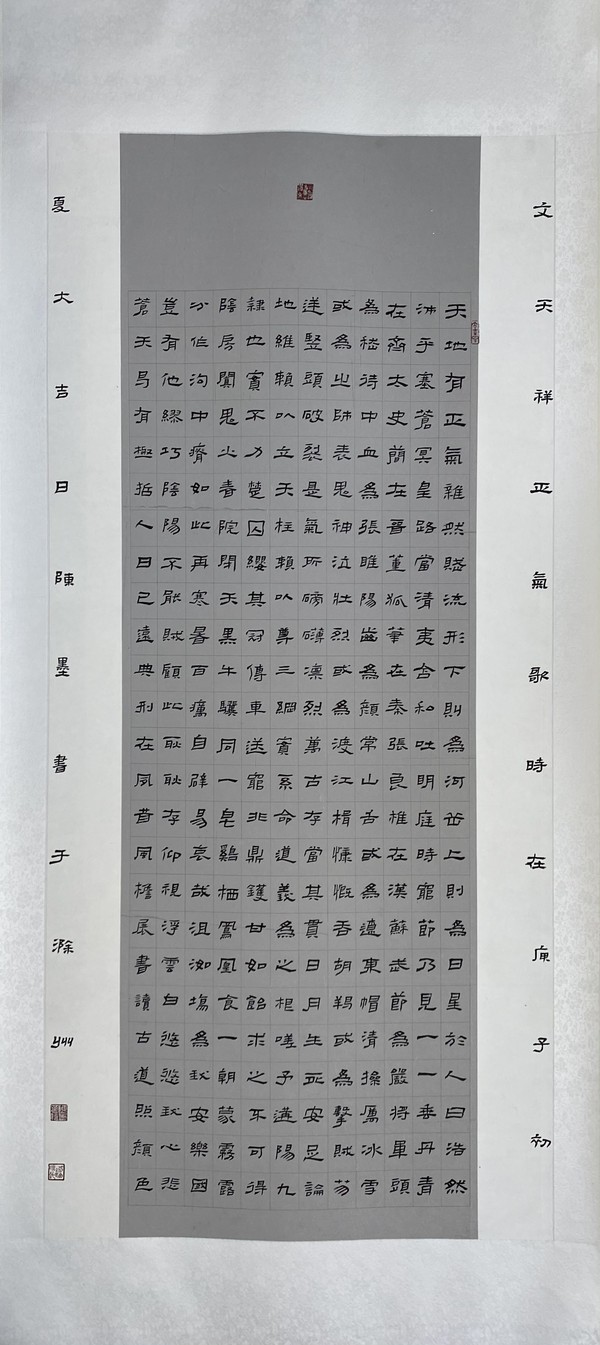 文天祥正氣歌時在庚子初
天地有正氣雜然賦流形下則為河岳上則為日星於人曰浩然
沛乎塞蒼冥皇路當清夷含和吐明庭時窮節乃見一一垂丹青
在齊太史簡在晉董狐筆在秦張良椎在漢蘇武節為嚴將軍頭
為嵇侍中血為張睢陽齒為顏常山舌或為遼東帽清操厲冰雪
或為出師表鬼神泣壯烈或為渡江楫慷慨吞胡羯或為擊賊笏
逆豎頭破裂是氣所磅礴凜烈萬古存當其貫日月生死安足論
地維賴以立天柱賴以尊三綱實系命道義為之根嗟予遘陽九
隸也實不力楚囚纓其冠傳車送窮北鼎鑊甘如飴求之不可得
陰房闃鬼火春院閉天黑牛驥同一皂鷄栖鳳凰食一朝蒙霧露
分作沟中瘠如此再寒暑百癘自辟易哀哉沮洳場為我安樂國
豈有他繆巧陰陽不能賊顧此耿耿存仰視浮雲白悠悠我心悲
蒼天曷有極哲人日已遠典刑在夙昔風檐展書讀古道照顏色
夏大吉日陳墨書于滁州